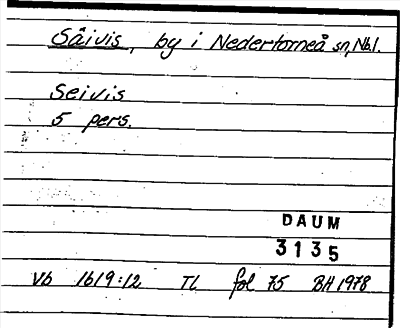 Säivis, by i Nedertorneå sn, Nbl.
Seivis
5 pers.
DAUM
3135
Vb 1619:12 TL fol 75 BH 1978